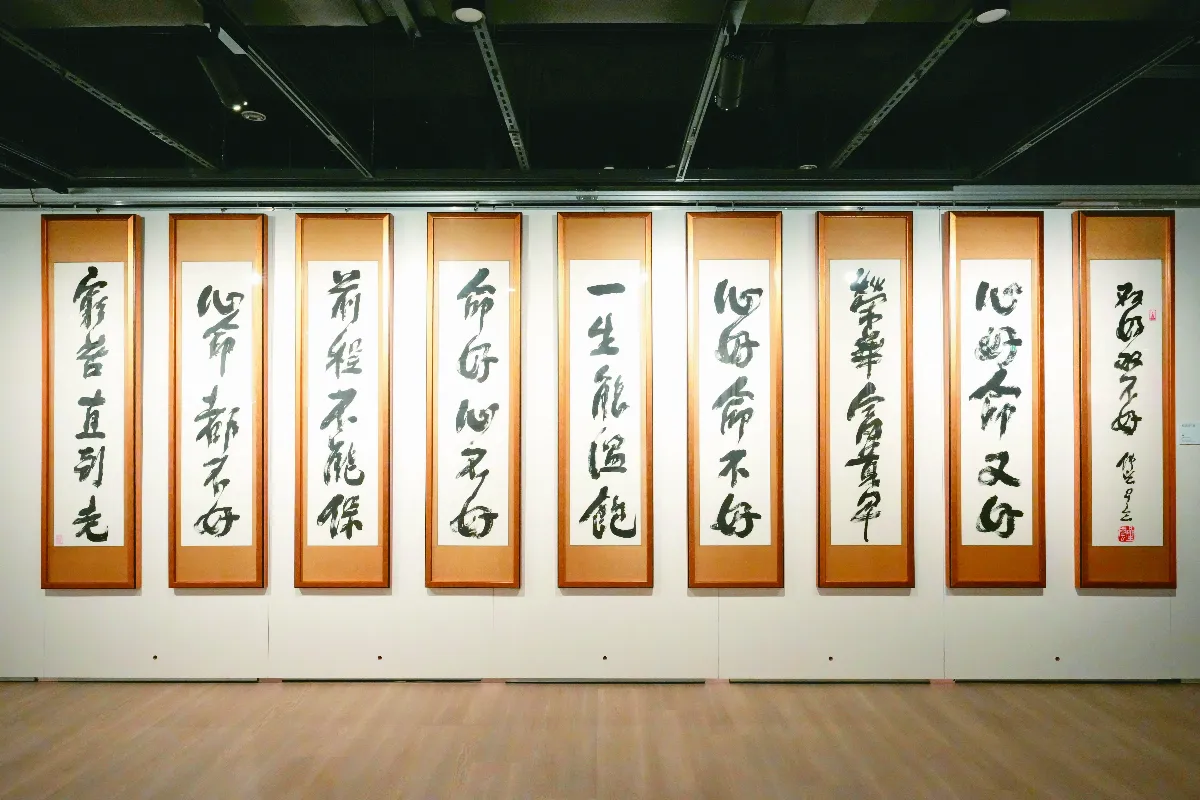 不好
心好命又好
榮華富貴早
心好命不好
一生能溫飽
命好心不好
前程不能保
心命都不好
窮苦直到老